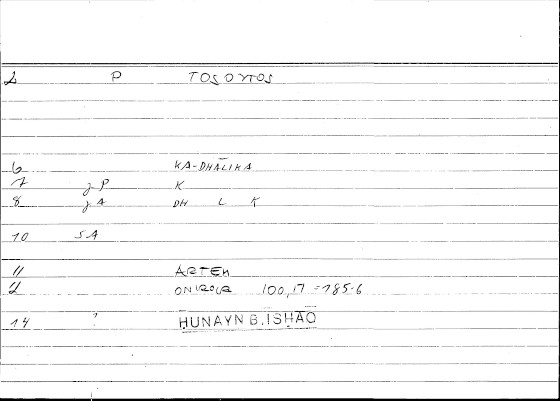 2 P TOSOYTOS
6 KA-DHĀLIKA
7 JP K
8 JA DH L K
10 SA
11 ARTEM
12 ONIROCR 100,17 = 185.6
14 ? ḤUNAYN B. ISḤĀQ